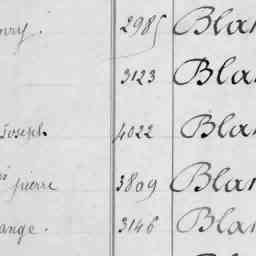 enry. 2985 Blan
3123 Blan
Joseph 4022 Blan
pierre 3809 Blan
ange. 3146 Blan